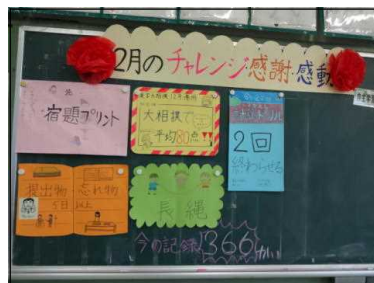 2月のチャレンジ・感謝・感動
宿題プリント
大相撲で
平均80点!!
2回
終わらせる
提出物 忘れ物
5日以上
長縄
今の記録366かい